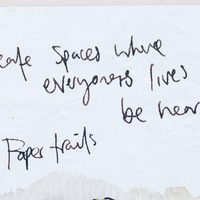 safe spaces where
everyones lives
be hear
Paper trails